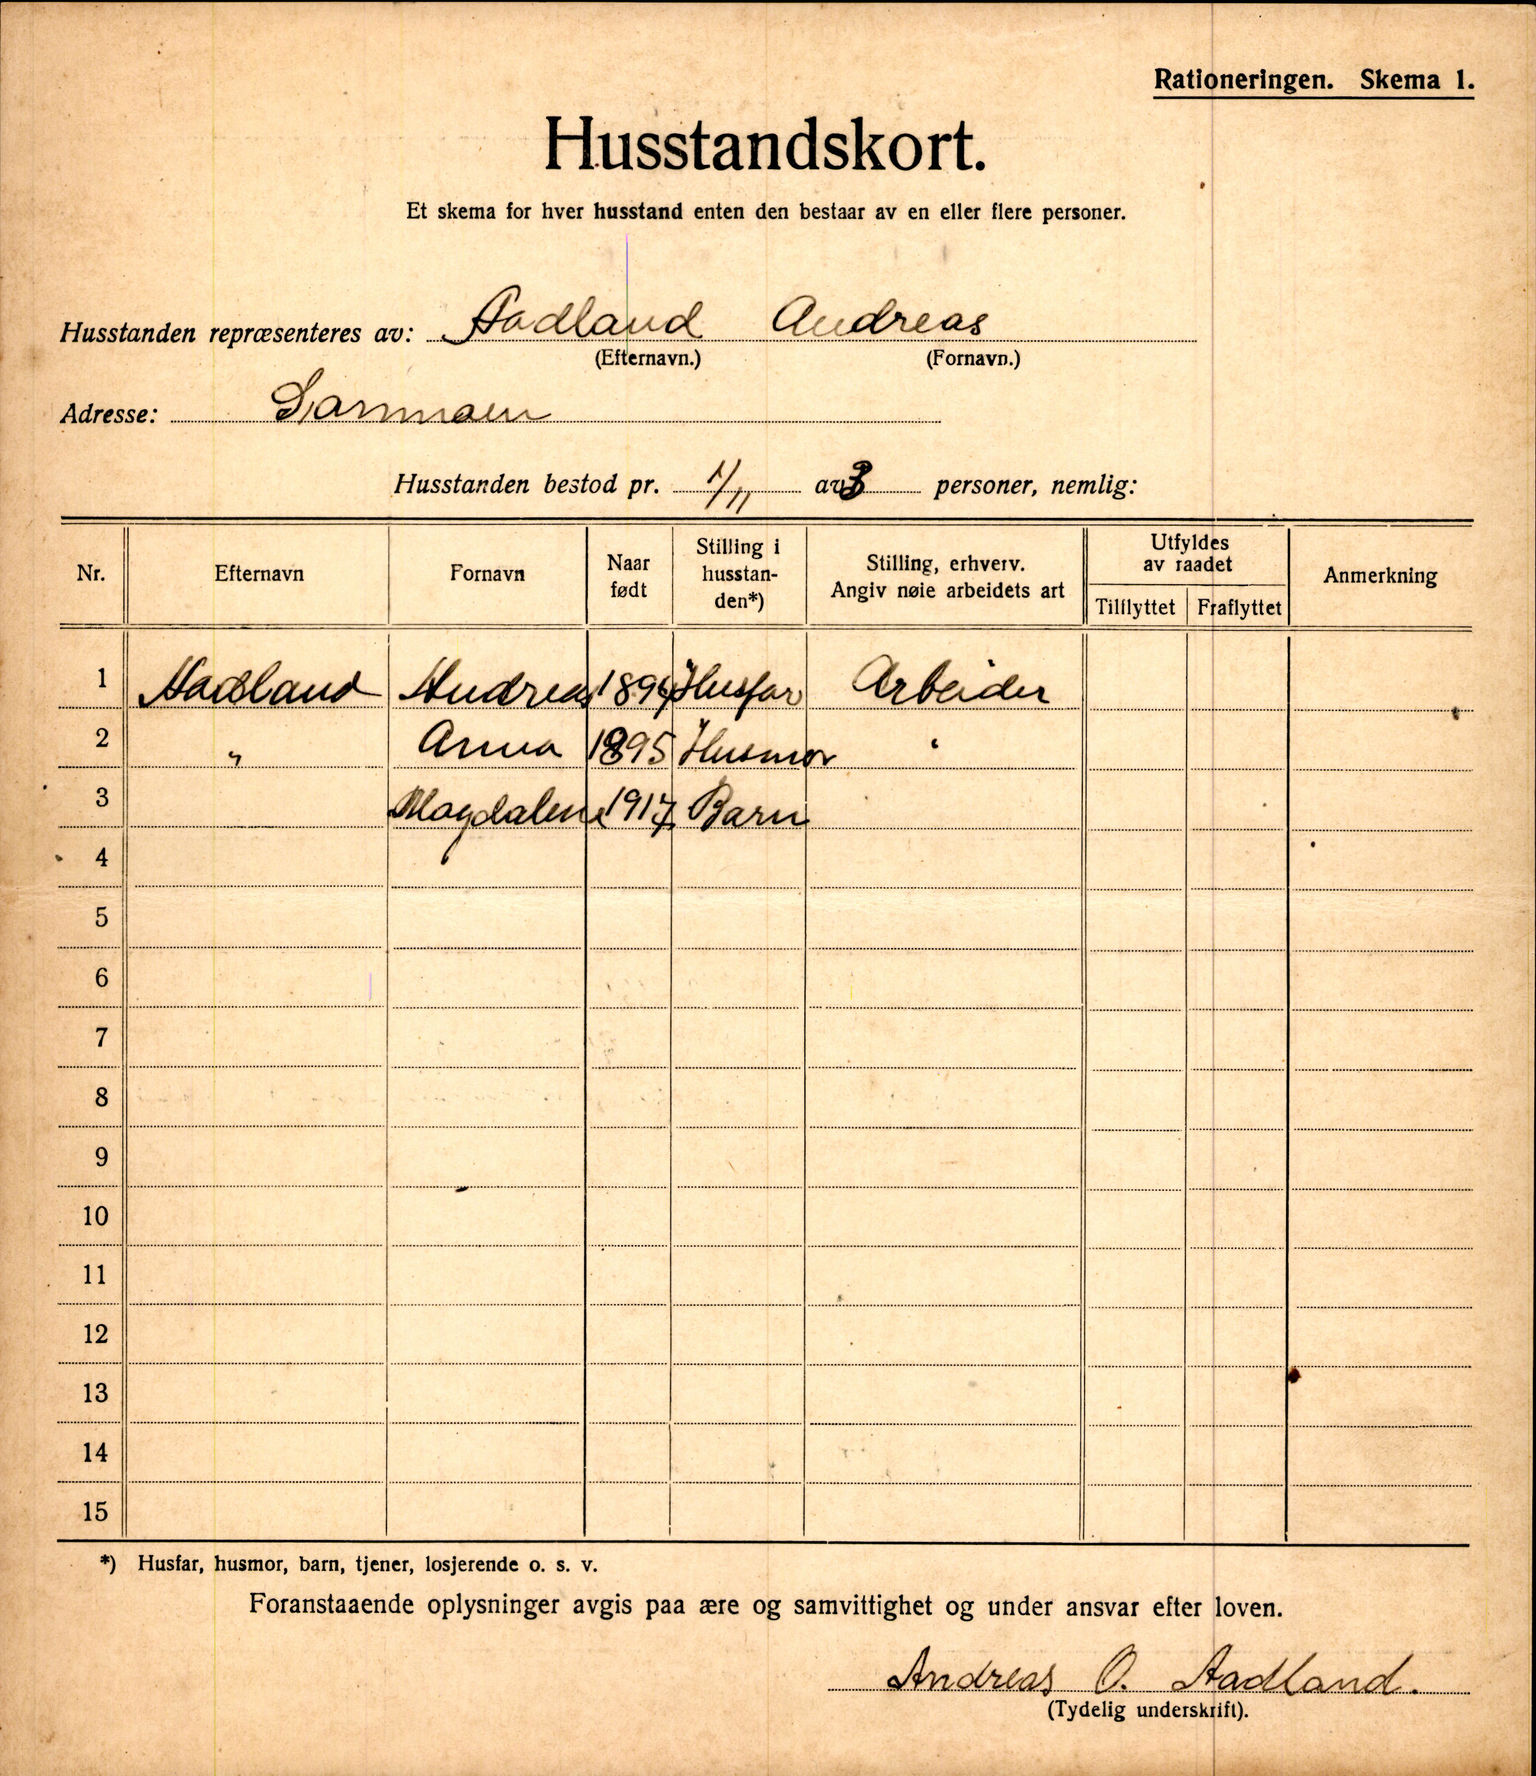 Rationeringen. Skema 1.
Husstandskort.
Et skema for hver husstand enten den bestaar av en eller flere personer.
Husstanden repræsenteres av: Aadland Andreas
(Efternavn.) (Fornavn.)
Adresse:
Husstanden bestod pr. 1/11 av 3 personer, nemlig:
Nr. Efternavn Fornavn Naar født Stilling i husstanden*) Stilling, erhverv. Angiv nøie arbeidets art Utfyldes av raadet Tilflyttet Fraflyttet Anmerkning
1 Aadland Andreas 1894 Husfar Arbeider
2 " Anna 1895 Husmor "
3 Magdalene 1917 Barn
4
5
6
7
8
9
10
11
12
13
14
15
*) Husfar, husmor, barn, tjener, losjerende o. s. v.
Foranstaaende oplysninger avgis paa ære og samvittighet og under ansvar efter loven.
Andreas O. Aadland.
(Tydelig underskrift).